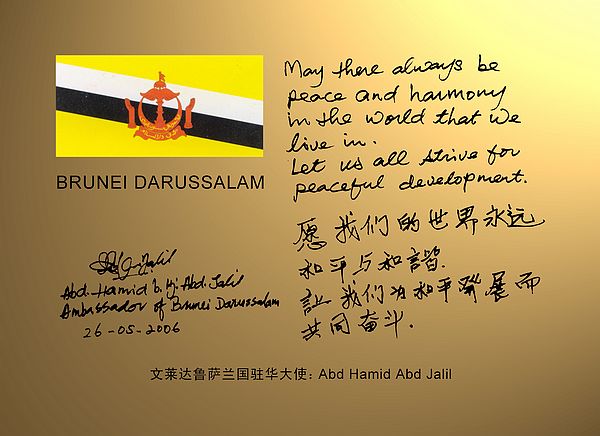 BRUNEI DARUSSALAM
Abd. Hamid b. Hj. Abd. Jalil
Ambassador of Brunei Darussalam
26-05-2006
May there always be
peace and harmony
in the world that we
live in.
Let us all strive for
peaceful development.
愿我们的世界永远
和平与和諧.
让我们为和平發展而
共同奋斗.
文莱达鲁萨兰国驻华大使: Abd Hamid Abd Jalil